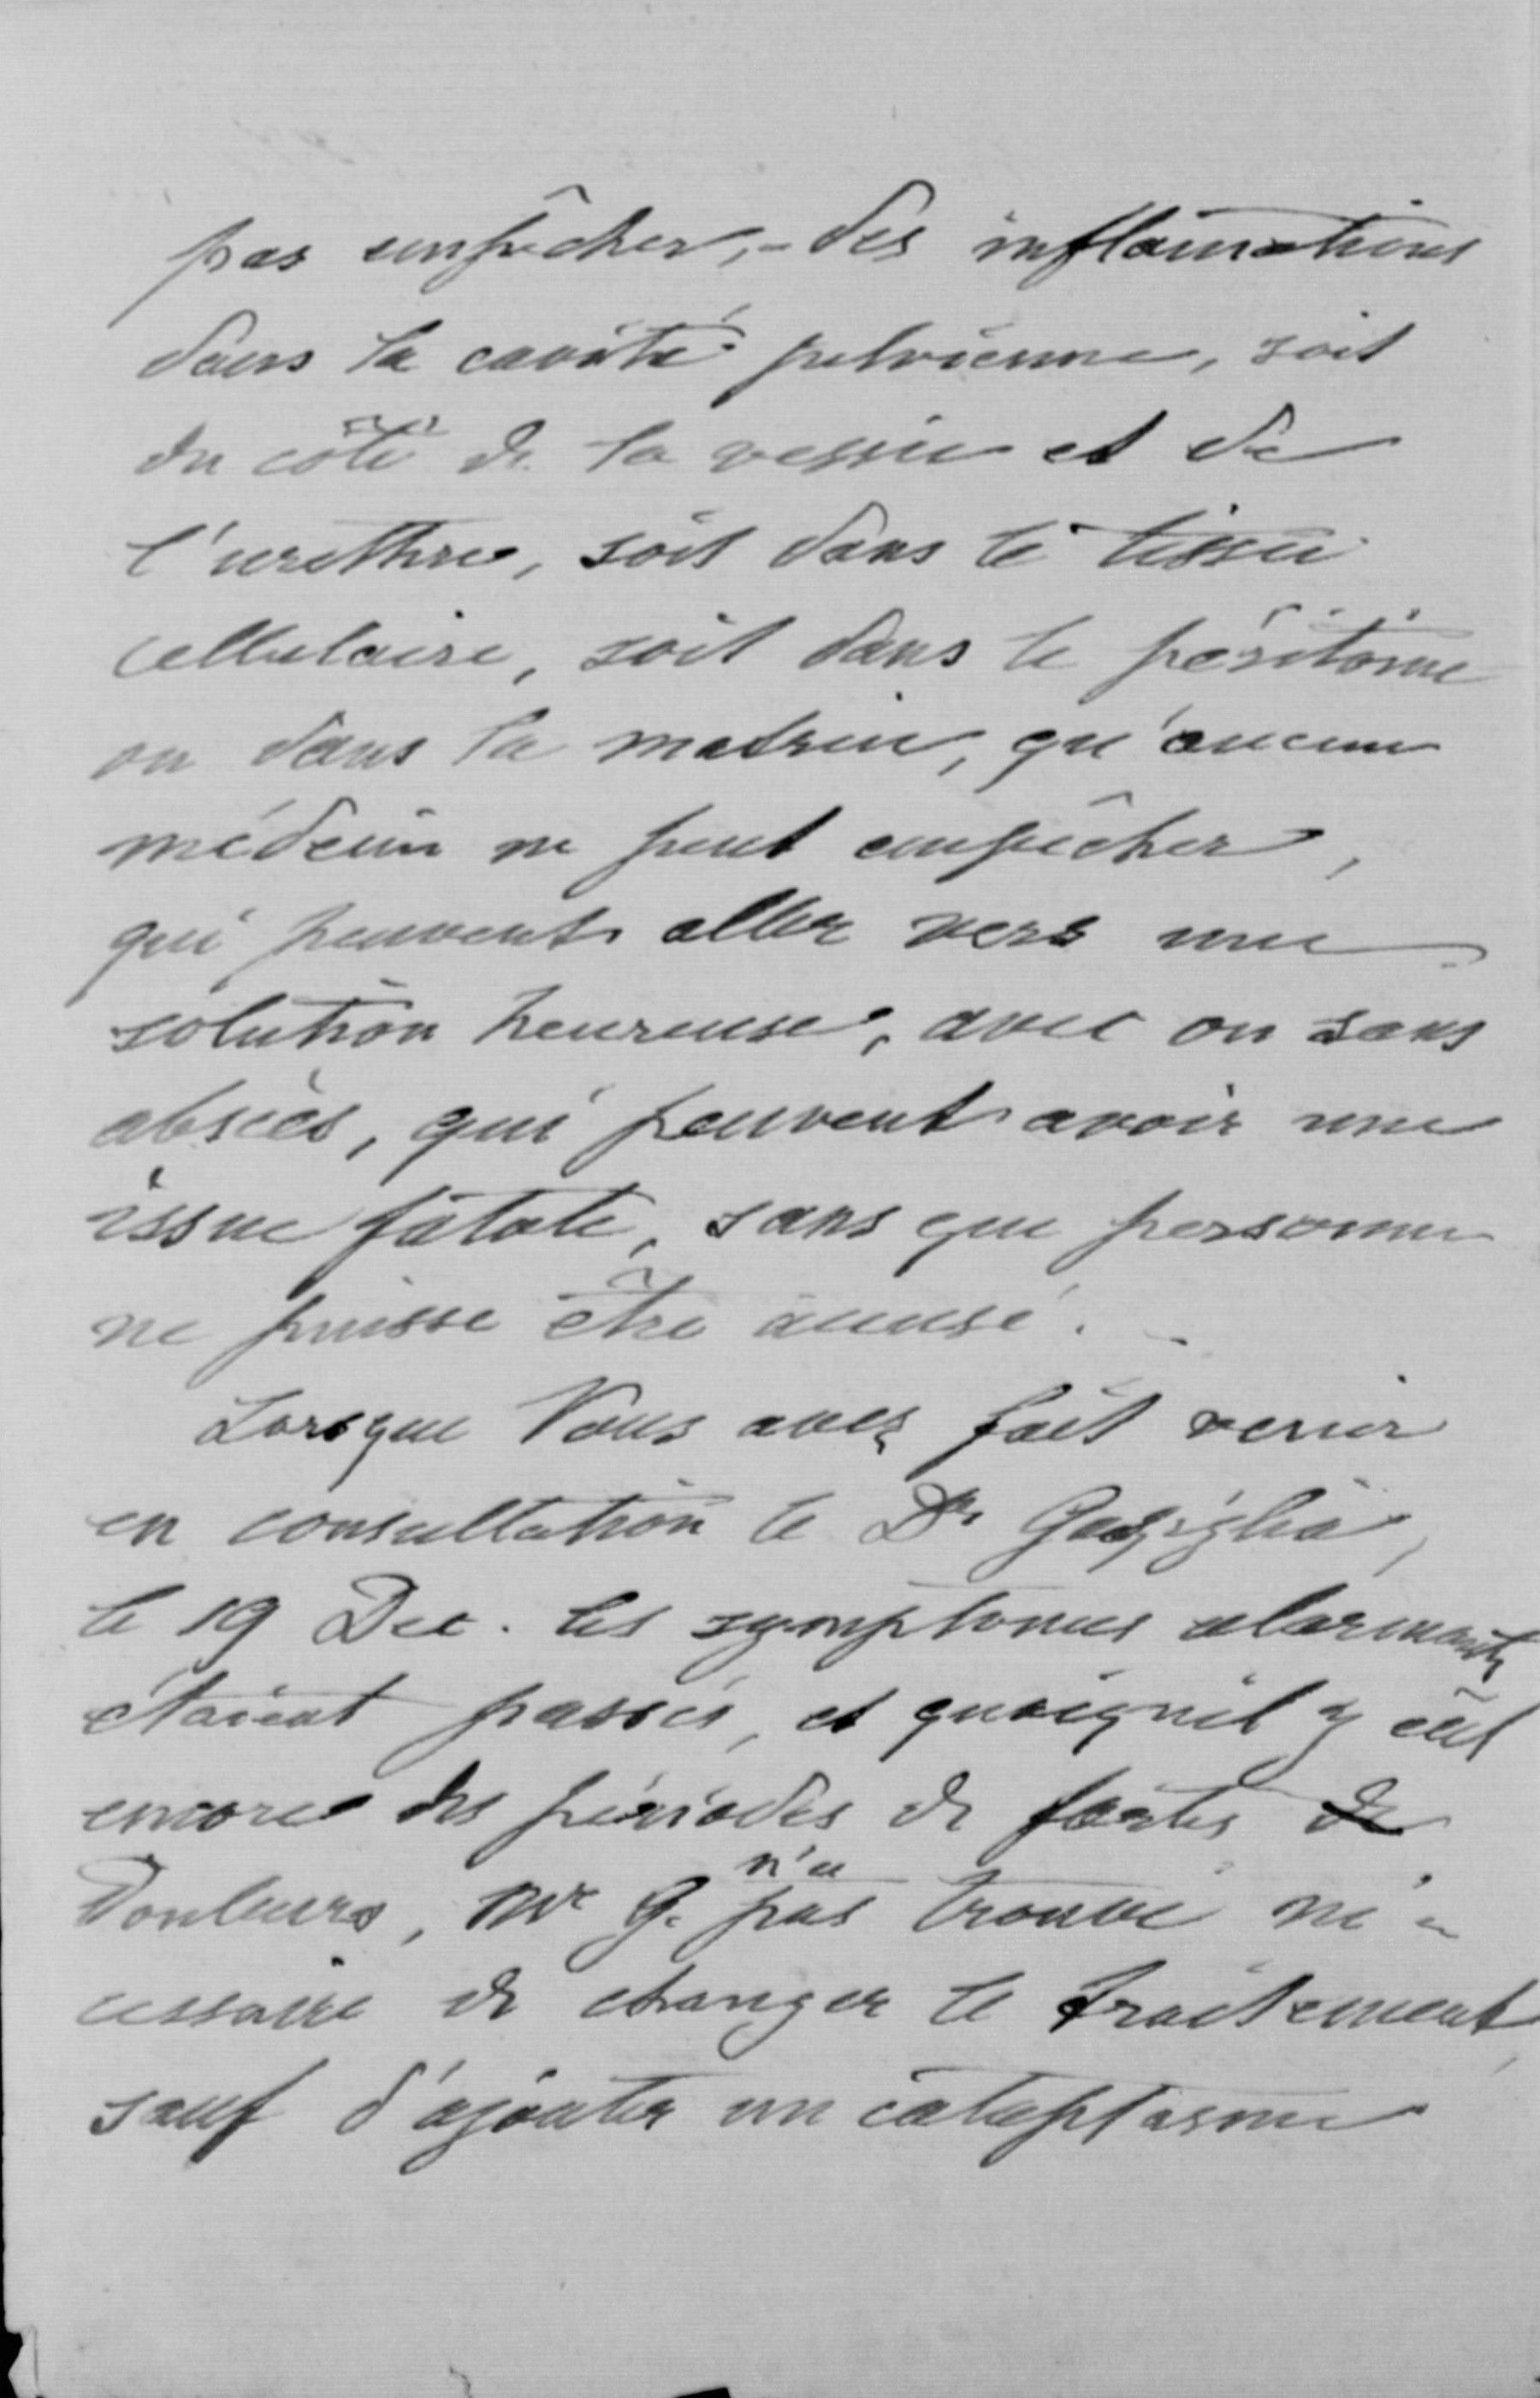 pas empêcher, - des inflamations
dans la cavité pelvienne, soit
du côté de la vessie et de
l'urethre, soit dans le tissu
cellulaire, soit dans le péritoine
ou dans la matrice, qu'aucun
médecin ne peut empêcher,
qui peuvent aller vers une
solution heureuse, avec ou sans
abscès, qui peuvent avoir une
issue fatale, sans que personne
ne puisse être accusé.
Lorsque Vous avez fait venir
en consultation le Dr
le 19 Dec. les symptomes alarmants
étaient passés, et quoiqu'il y eût
encore des périodes de fortes de
douleurs, Mr G. n'a pas trouvé né-
cessaire de changer le traitement,
sauf d'ajouter un cataplasme